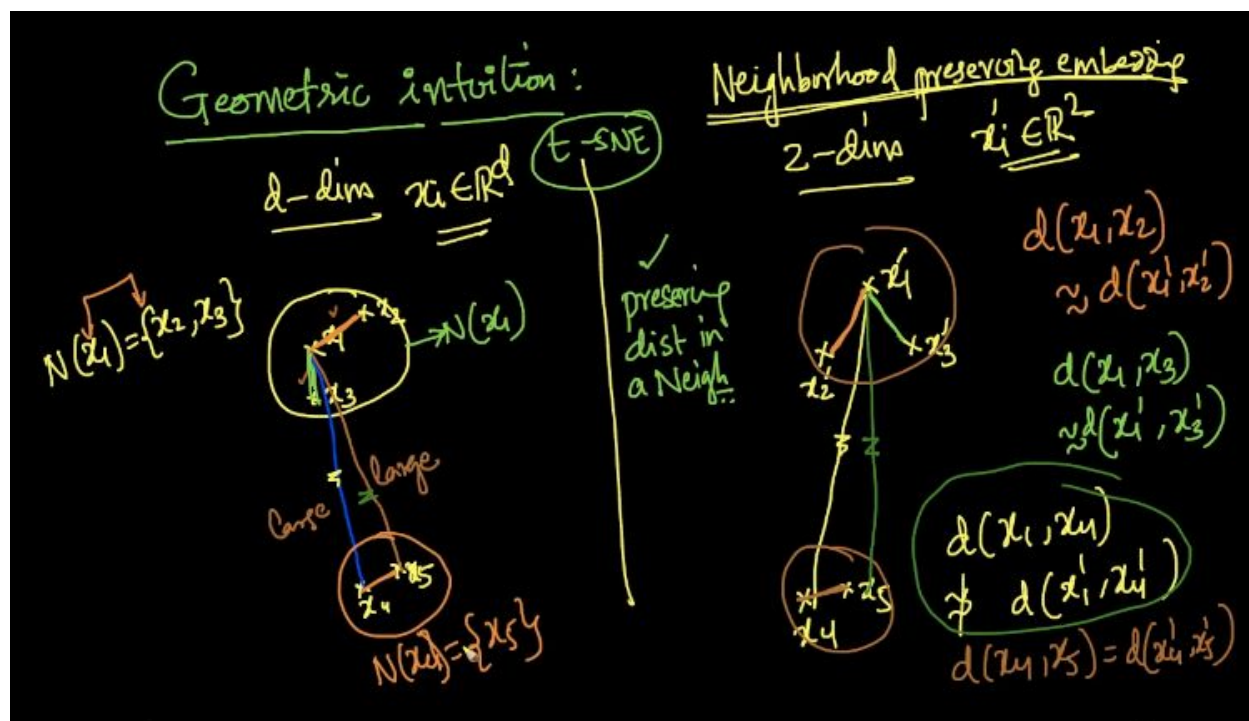 Geometric intuition:
t-SNE
d-dims xᵢ∈ℝᵈ
N(x₁)={x₂,x₃}
x₁
x₂
x₃
→N(x₁)
large
large
x₄
x₅
N(x₄)={x₅}
✓
preserving
dist in
a Neigh..
Neighborhood preserving embedding
2-dims xᵢ'∈ℝ²
x₁'
x₂'
x₃'
x₄
x₅'
d(x₁,x₂)
≈ d(x₁',x₂')
d(x₁,x₃)
≈ d(x₁',x₃')
d(x₁,x₄)
≉ d(x₁',x₄')
d(x₄,x₅)=d(x₄',x₅')